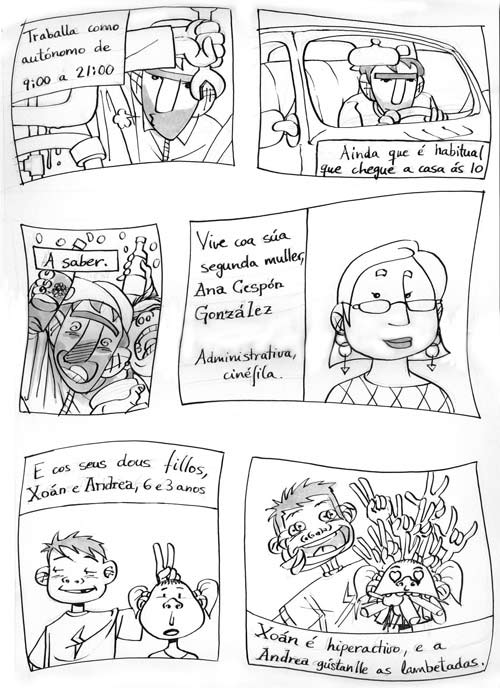 Traballa como
autónomo de
9:00 a 21:00
Ainda que é habitual
que chegue a casa ás 10
A saber.
Vive coa súa
segunda muller,
Ana Cespón
González
Administrativa,
cinéfila.
E cos seus dous fillos,
Xoán e Andrea, 6 e 3 anos
Xoán é hiperactivo, e a
Andrea gústanlle as lambetadas.